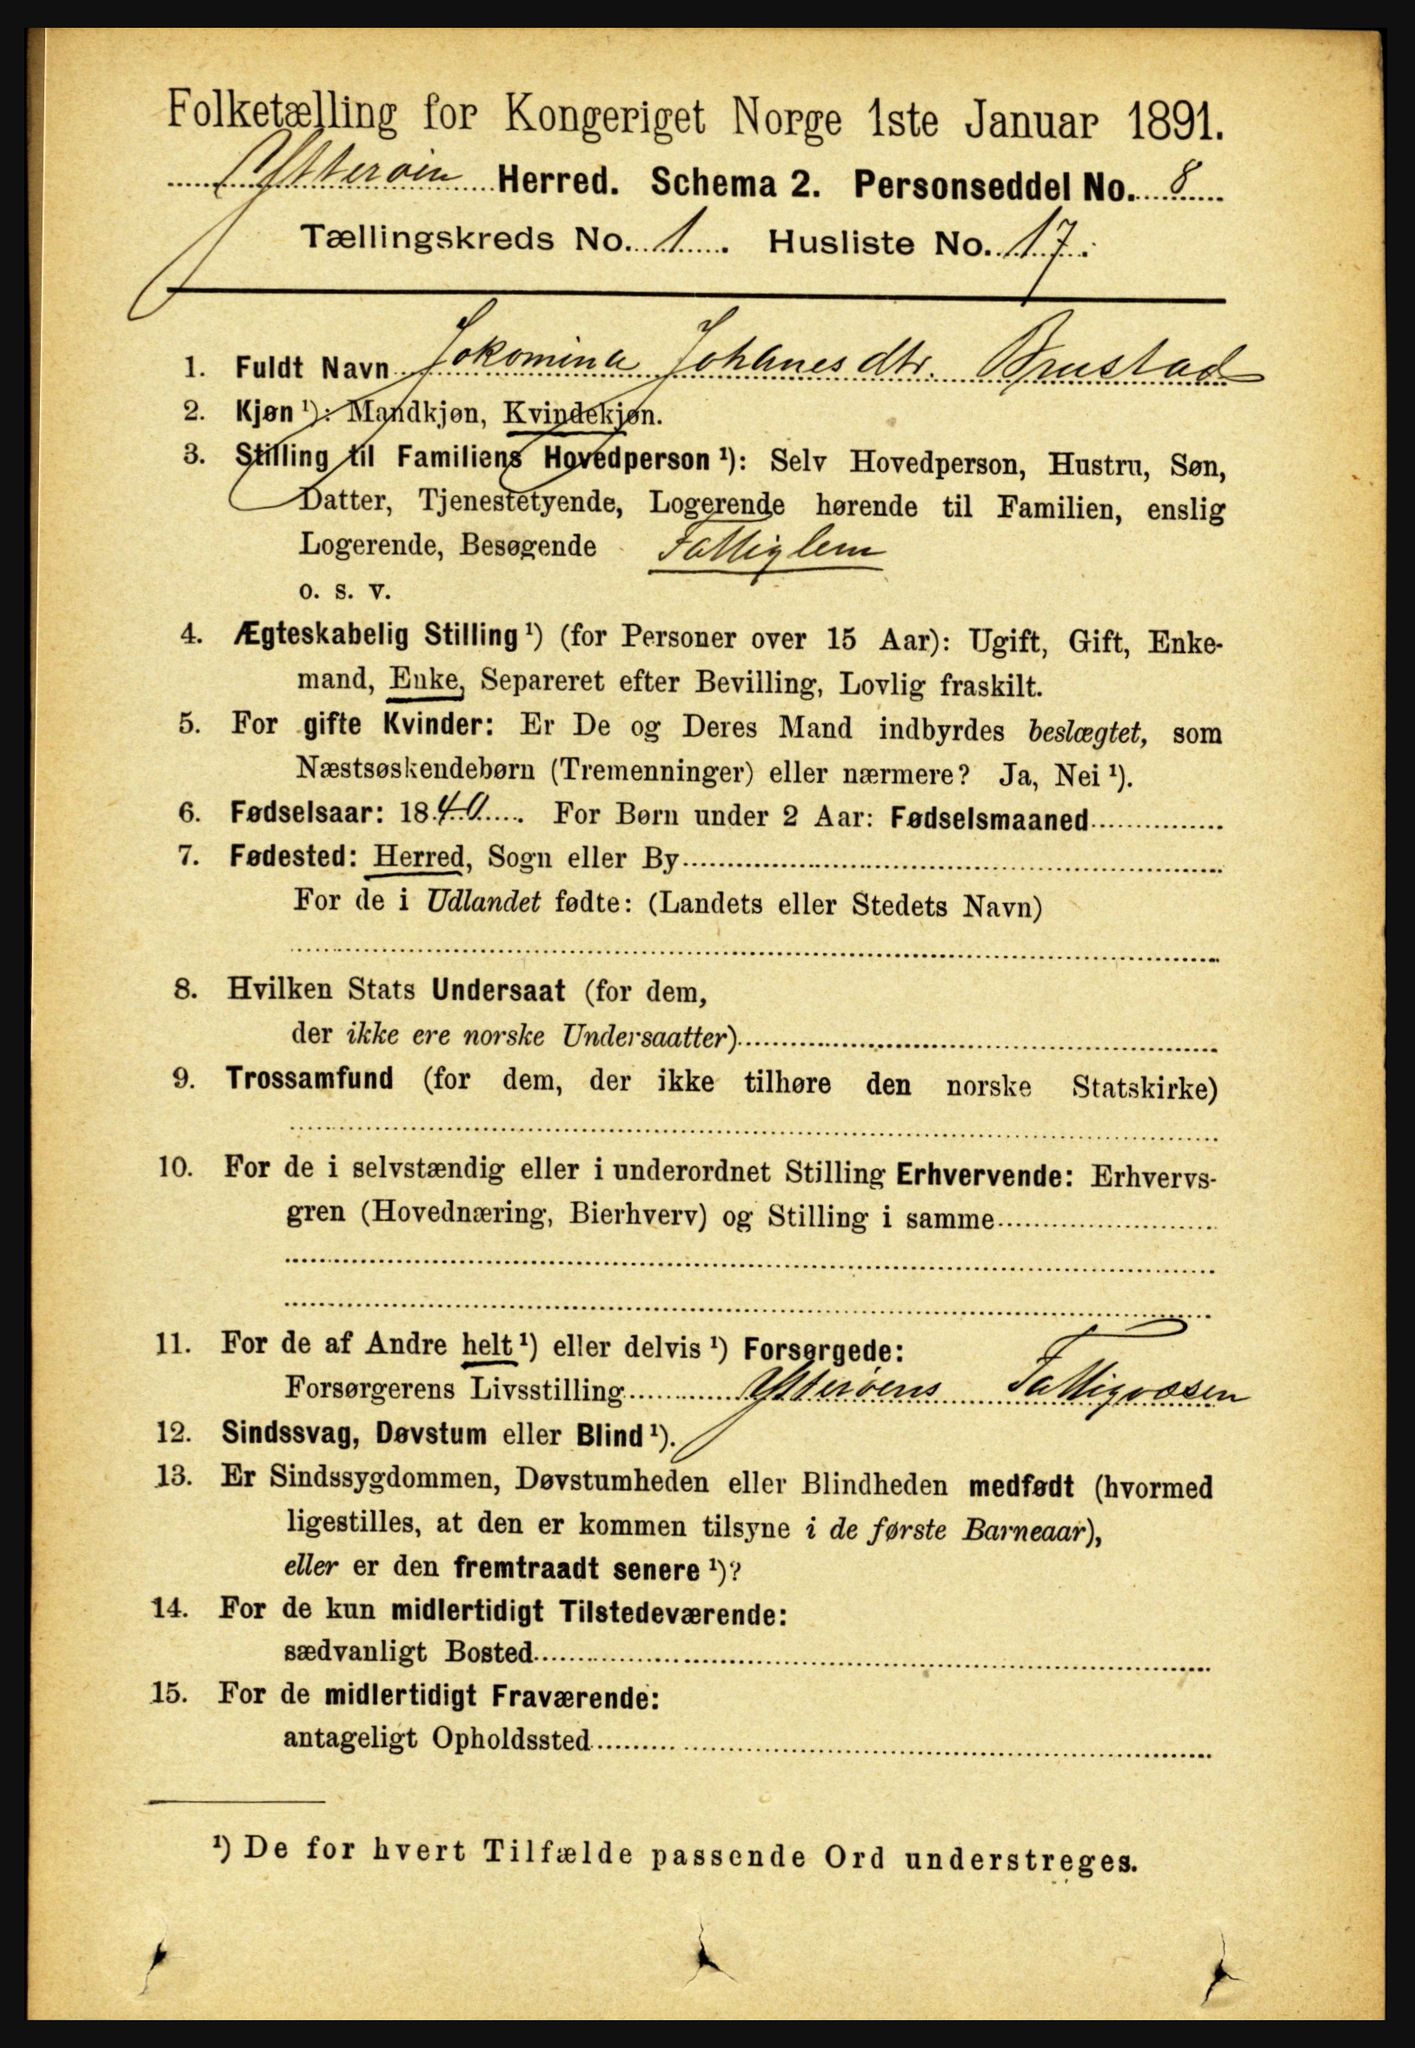 Folketælling for Kongeriget Norge 1ste Januar 1891.
Ytterøen Herred. Schema 2. Personseddel No. 8
Tællingskreds No. 1. Husliste No. 17.
1. Fuldt Navn Jokomina Johanesdtr. Brustad
2. Kjøn ¹): Mandkjøn, Kvindekjøn.
3. Stilling til Familiens Hovedperson ¹): Selv Hovedperson, Hustru, Søn,
Datter, Tjenestetyende, Logerende hørende til Familien, enslig
Logerende, Besøgende Fattiglem
o. s. v.
4. Ægteskabelig Stilling ¹) (for Personer over 15 Aar): Ugift, Gift, Enke-
mand, Enke, Separeret efter Bevilling, Lovlig fraskilt.
5. For gifte Kvinder: Er De og Deres Mand indbyrdes beslægtet, som
Næstsøskendebørn (Tremenninger) eller nærmere? Ja, Nei ¹).
6. Fødselsaar: 1840. For Børn under 2 Aar: Fødselsmaaned
7. Fødested: Herred, Sogn eller By
For de i Udlandet fødte: (Landets eller Stedets Navn)
8. Hvilken Stats Undersaat (for dem,
der ikke ere norske Undersaatter)
9. Trossamfund (for dem, der ikke tilhøre den norske Statskirke)
10. For de i selvstændig eller i underordnet Stilling Erhvervende: Erhvervs-
gren (Hovednæring, Bierhverv) og Stilling i samme
11. For de af Andre helt ¹) eller delvis ¹) Forsørgede:
Forsørgerens Livsstilling Ytterøens Fattigvæsen
12. Sindssvag, Døvstum eller Blind ¹).
13. Er Sindssygdommen, Døvstumheden eller Blindheden medfødt (hvormed
ligestilles, at den er kommen tilsyne i de første Barneaar),
eller er den fremtraadt senere ¹)?
14. For de kun midlertidigt Tilstedeværende:
sædvanligt Bosted
15. For de midlertidigt Fraværende:
antageligt Opholdssted
¹) De for hvert Tilfælde passende Ord understreges.